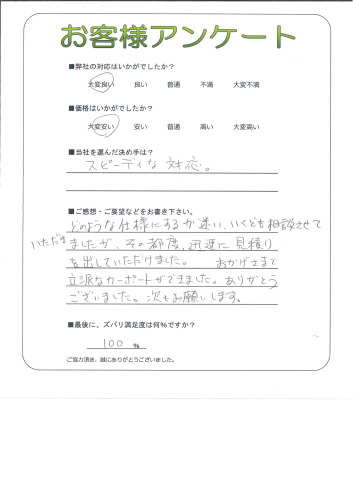 お客様アンケート
■弊社の対応はいかがでしたか？
大変良い 良い 普通 不満 大変不満
■価格はいかがでしたか？
大変安い 安い 普通 高い 大変高い
■当社を選んだ決め手は？
スピーディな対応。
■ご感想・ご要望などをお書き下さい。
どのような仕様にするか迷い、いくども相談させて
いただきましたが、その都度、迅速に見積り
を出していただけました。 おかげさまで
立派なカーポートができました。ありがとう
ございました。次もお願いします。
■最後に、ズバリ満足度は何％ですか？
100 %
ご協力頂き、誠にありがとうございました。